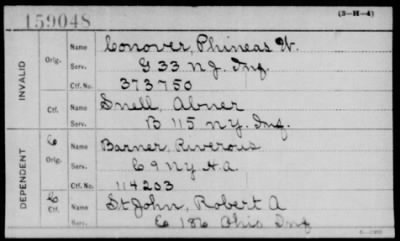 159048 (3-H-4)
INVALID
Orig. Name Conover, Phineas W.
Serv. G 33 N.J. Inf.
Ctf. No. 373750
Ctf. Name Snell, Abner
Serv. B 115 N.Y. Inf.
DEPENDENT
C Orig. Name Barner, Riverous
Serv. C 9 N.Y. H.A.
Ctf. No. 114203
C Ctf. Name St John, Robert A
Serv. C 186 Ohio Inf